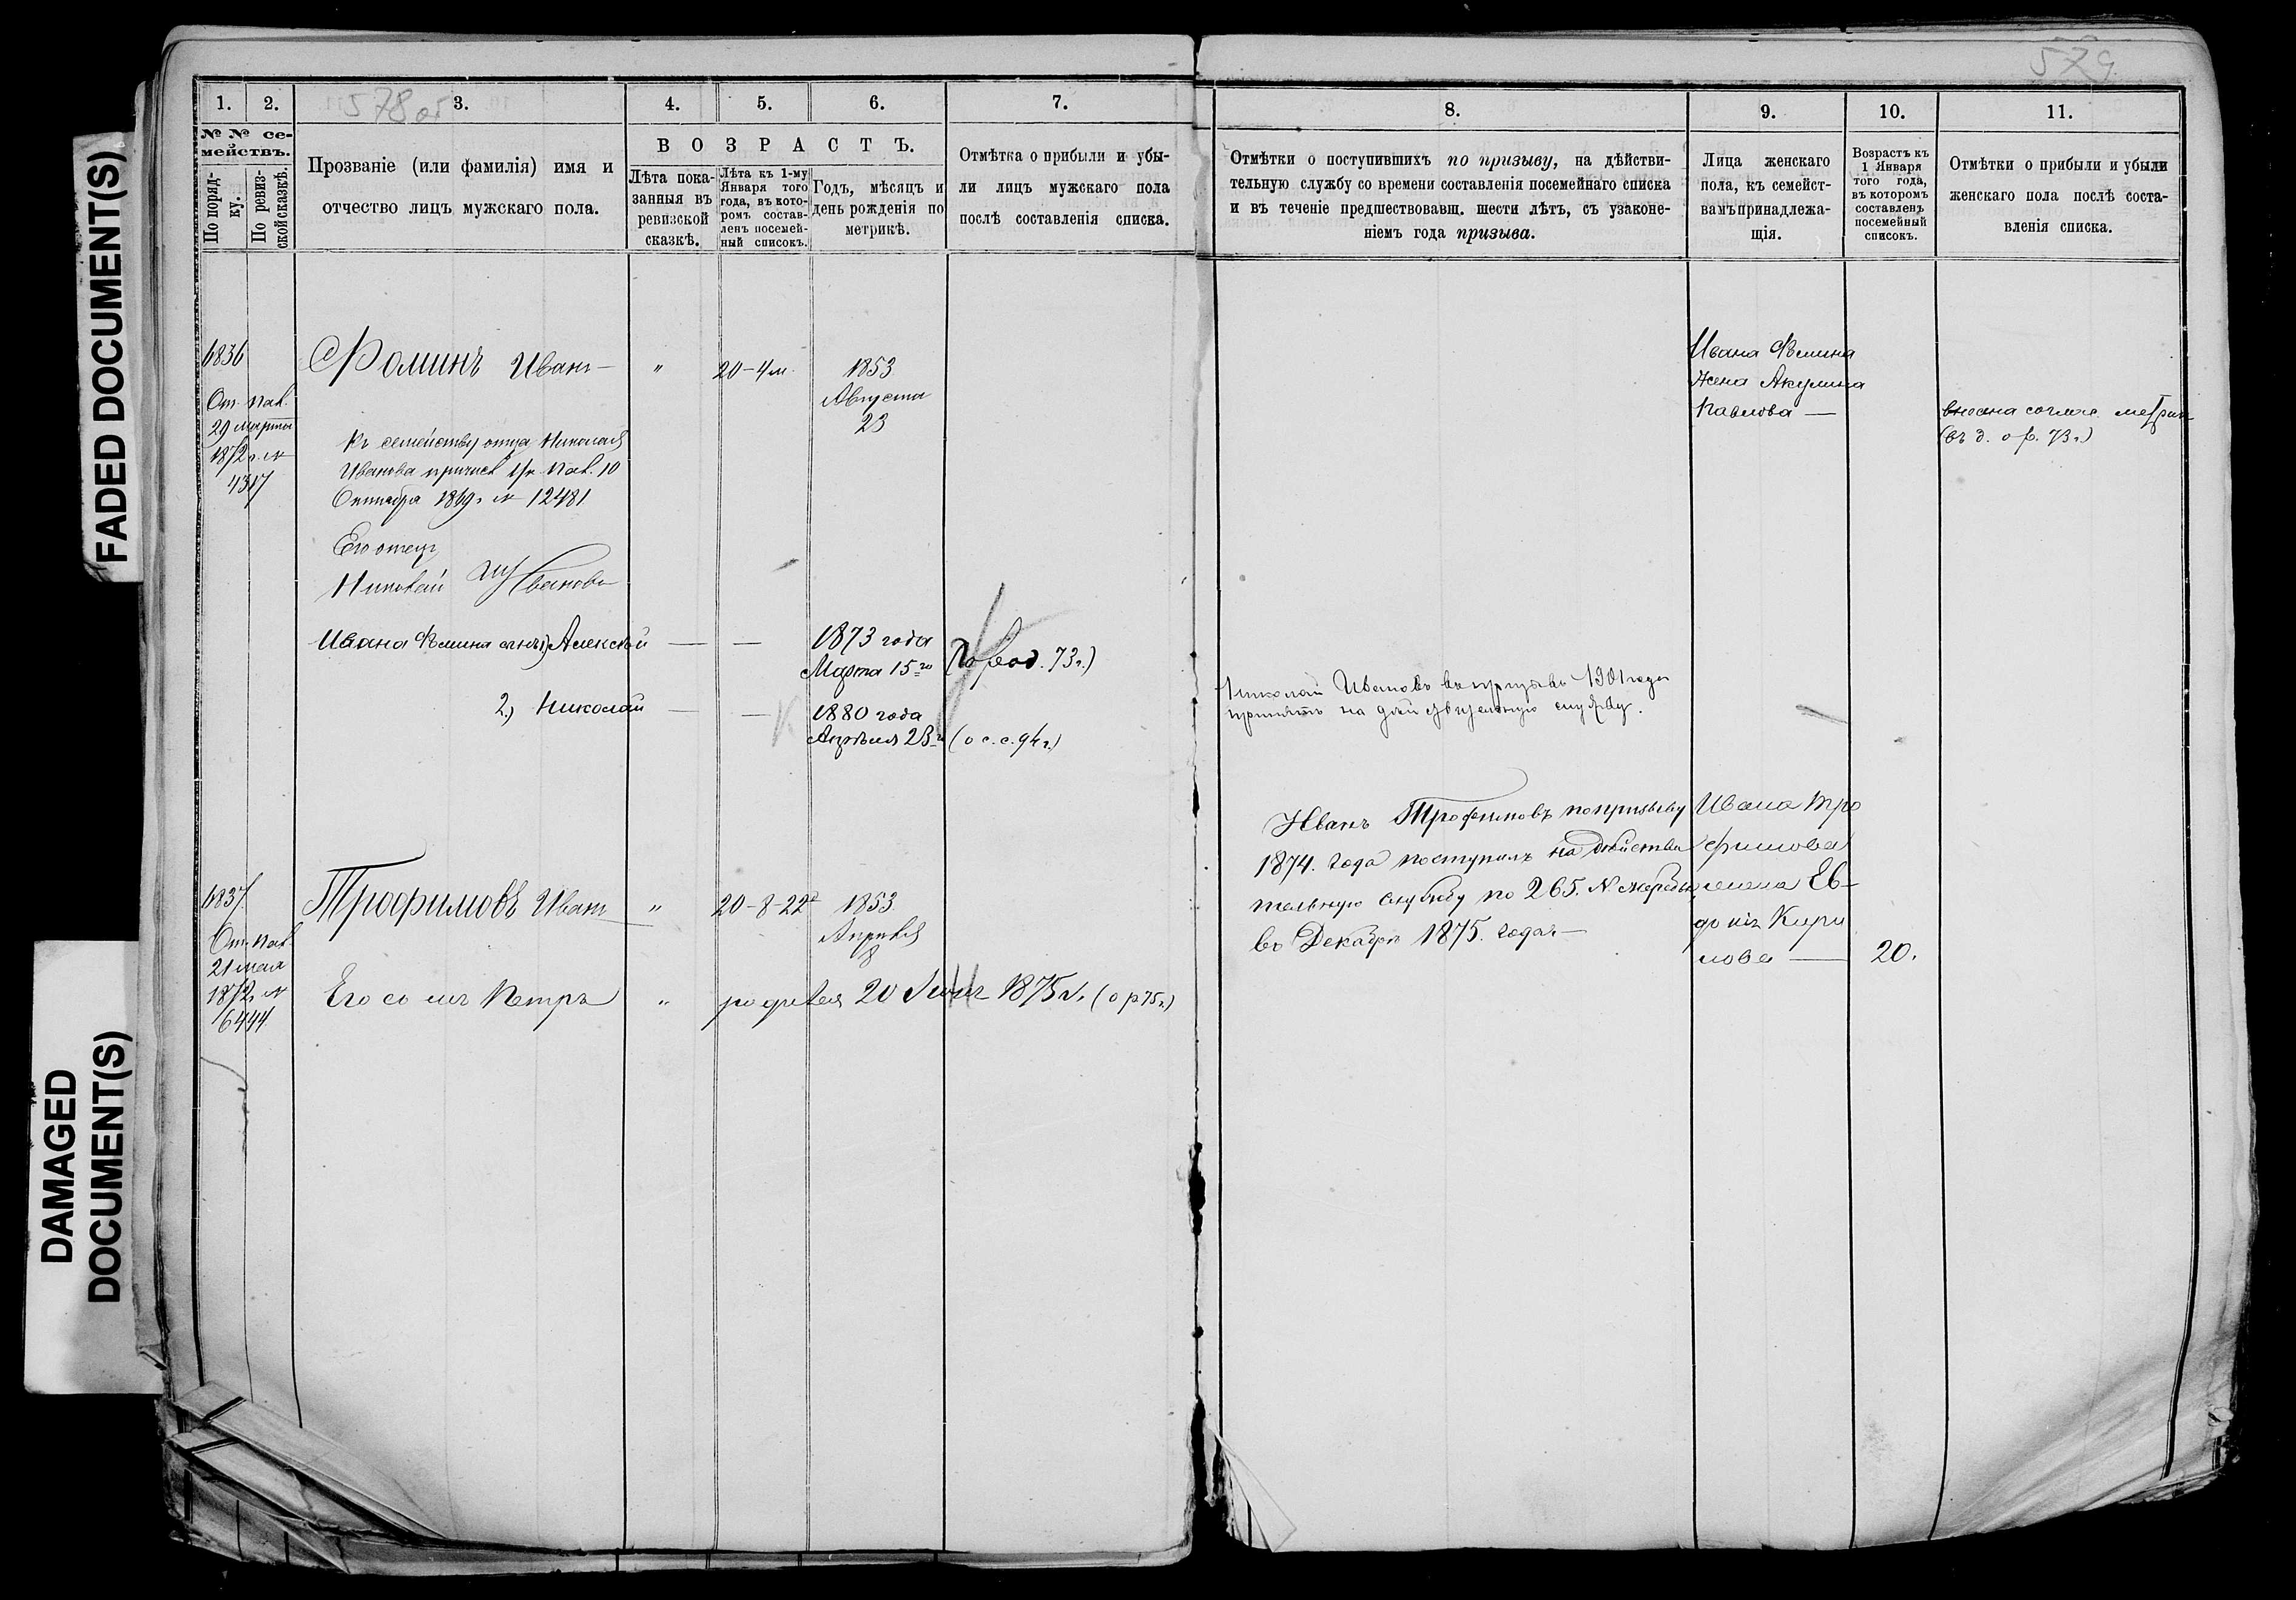 FADED DOCUMENT(S)
DAMAGED
DOCUMENT(S)
578 об
1. 2. 3. 4. 5. 6. 7.
№ № се-
мействъ.
По поряд-
ку.
По ревиз-
ской сказкѣ.
Прозваніе (или фамилія) имя и
отчество лицъ мужскаго пола.
ВОЗРАСТЪ.
Лѣта пока-
занныя въ
ревизской
сказкѣ.
Лѣта къ 1-му
Января того
года, въ кото-
ромъ состав-
ленъ посемей-
ный списокъ.
Годъ, мѣсяцъ и
день рожденія по
метрикѣ.
Отмѣтка о прибыли и убы-
ли лицъ мужскаго пола
послѣ составленія списка.
6836 Фоминъ Иванъ — " 20-4 м. 1853
Августа
23
От. пал.
29 марта
1872 г. №
4317
Къ семейству отца Николая
Иванова причисл. Ук. Пал. 10
Октября 1869 г. № 12481
Его отецъ
Николай Ивановъ
Ивана Фомина сынъ 1) Алексѣй — — 1873 года
Марта 15го (о род. 73 г.)
2) Николай — — 1880 года
Апрѣля 23го (о с. с. 94 г.)
6837 Трофимовъ Иванъ " 20-8-22 1853
Апрѣля
8
От. пал.
21 мая
1872 г. №
6444
Его сынъ Петръ " родился 20 Июня 1875 г. (о р. 75 г.)
579
8. 9. 10. 11.
Отмѣтки о поступившихъ по призыву, на дѣйстви-
тельную службу со времени составленія посемейнаго списка
и въ теченіе предшествовавш. шести лѣтъ, съ узаконе-
ніемъ года призыва.
Лица женскаго
пола, къ семейст-
вамъ принадлежа-
щія.
Возрастъ къ
1 Января
того года,
въ которомъ
составленъ
посемейный
списокъ.
Отмѣтки о прибыли и убыли
женскаго пола послѣ соста-
вленія списка.
Ивана Фомина
жена Акулина
Павлова —
внесена соглас. метрик.
(въ д. о р. 73 г.)
Николай Ивановъ въ призывъ 1901 года
принятъ на дѣйствительную службу.
Иванъ Трофимовъ по призыву
1874. года поступилъ на дѣйстви
тельную службу по 265. № жеребья
въ Декабрѣ 1875. года —
Ивана Тро
фимова
жена Ев-
докія Кири
лова — 20.